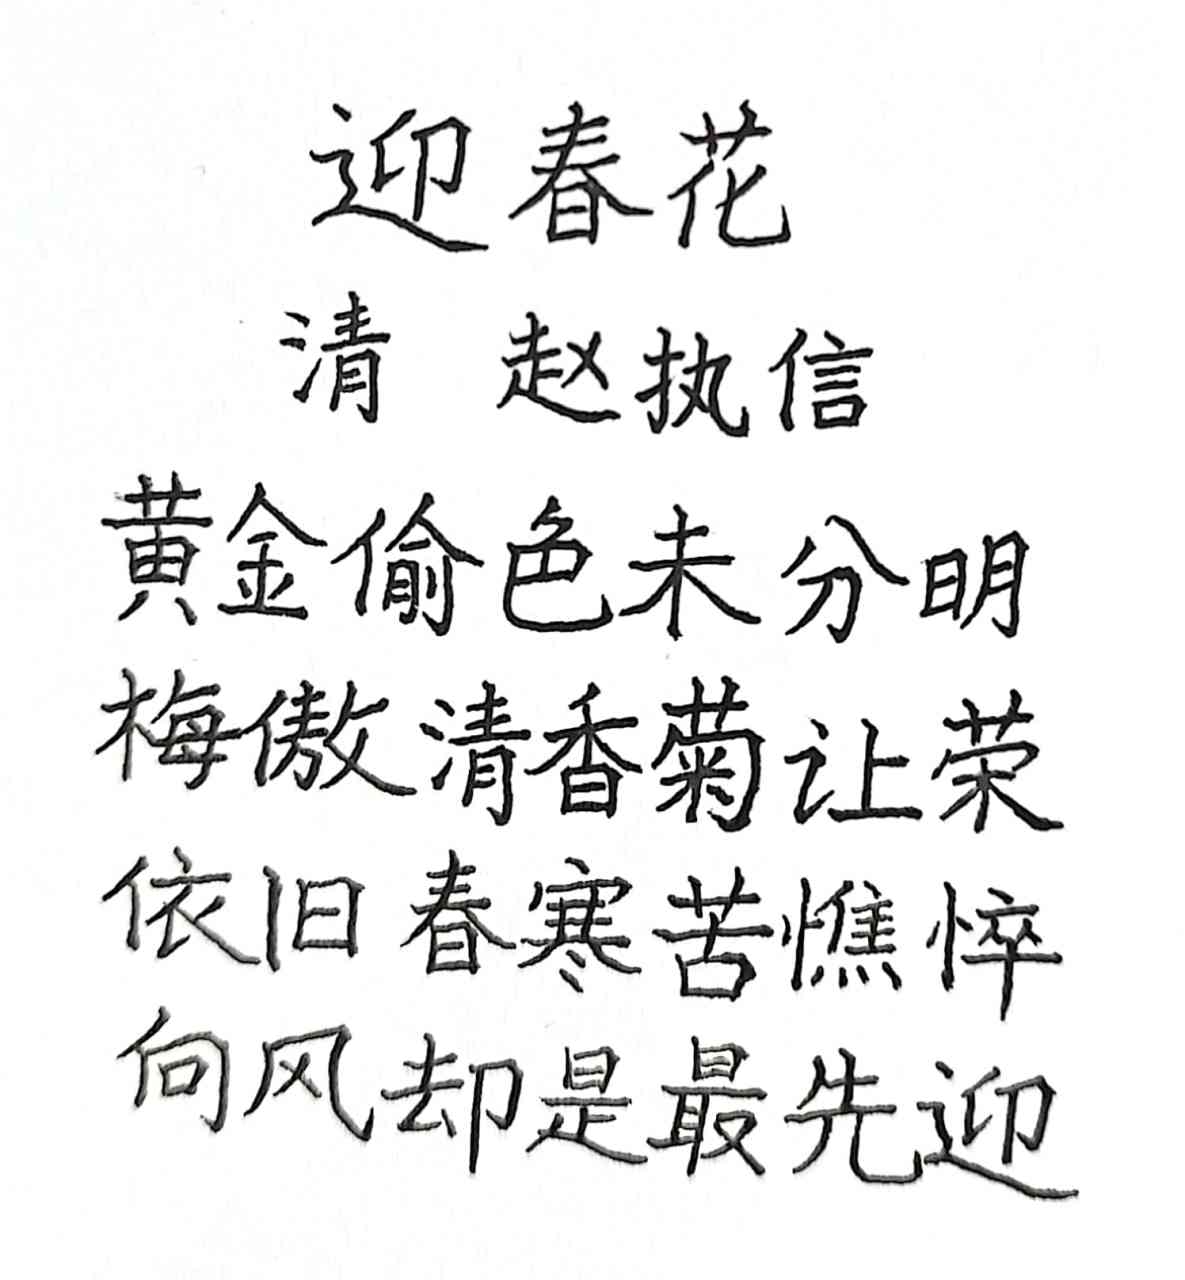 迎春花
清 赵执信
黄金偷色未分明
梅傲清香菊让荣
依旧春寒苦憔悴
向风却是最先迎